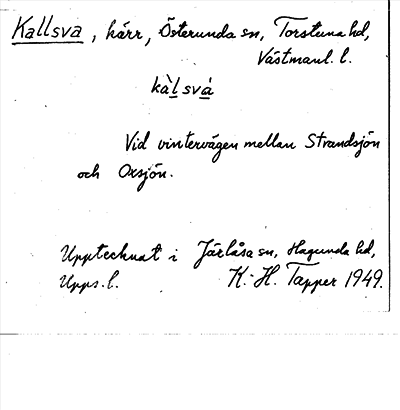 Kallsva, kärr, Österunda sn, Torstuna hd,
Västmanl. l.
kàlsvá
Vid vintervägen mellan Strandsjön
och Oxsjön.
Upptecknat i Järlåsa sn, Hagunda hd,
Upps. l. K.-H. Tapper 1949.